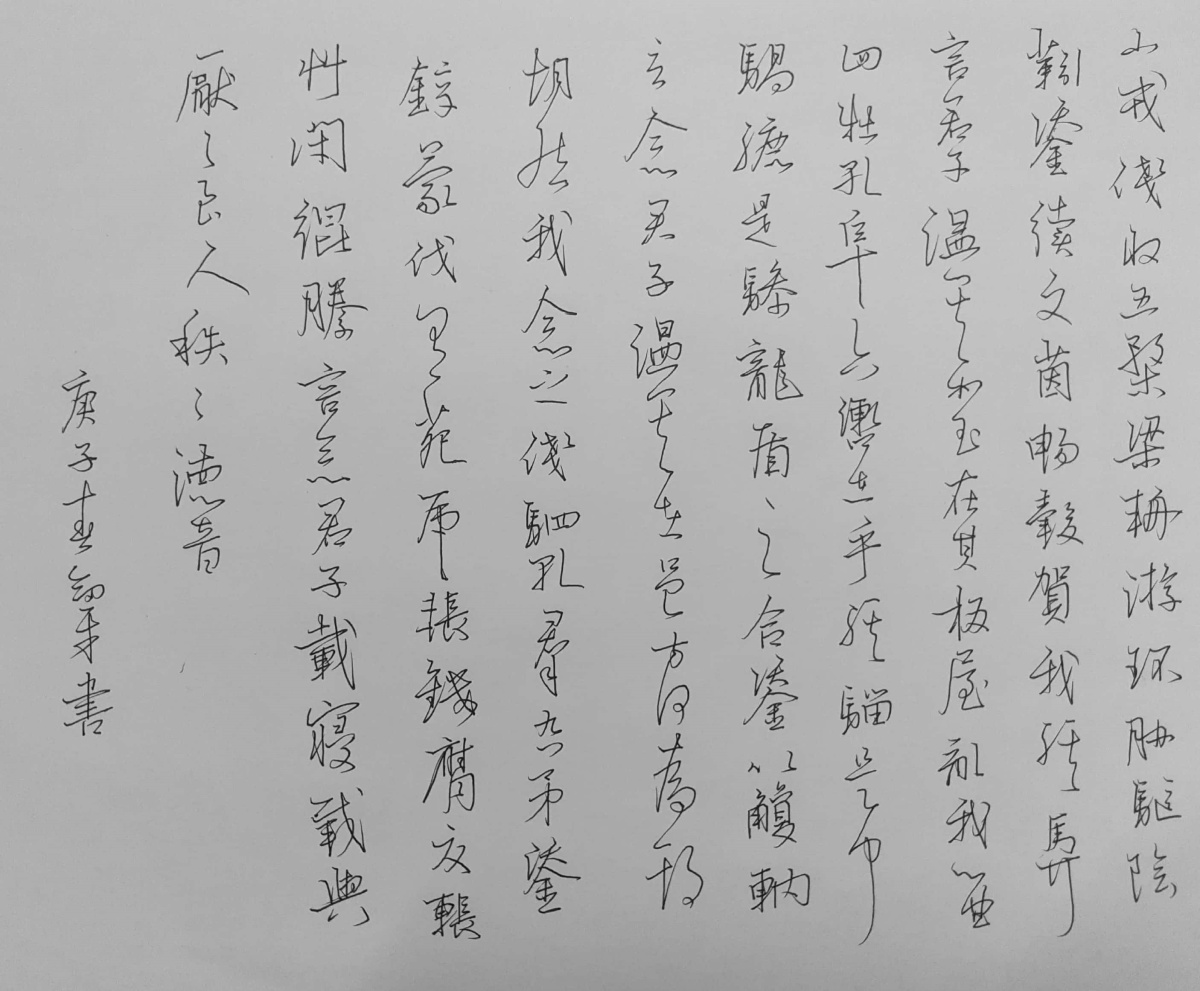 小戎俴收五楘梁輈游环胁駆陰
靷鋈續文茵暢轂賀我騏馵
言君子温其如玉在其板屋亂我心曲
四牡孔阜六轡在手騏騮是中
騧驪是驂龍盾之合鋈以觼軜
言念君子温其在邑方何為期
胡然我念之俴駟孔羣厹矛鋈
錞蒙伐有苑虎韔鏤膺交韔
竹閑緄縢言念君子載寢載興
厭々良人秩々德音
庚子春書